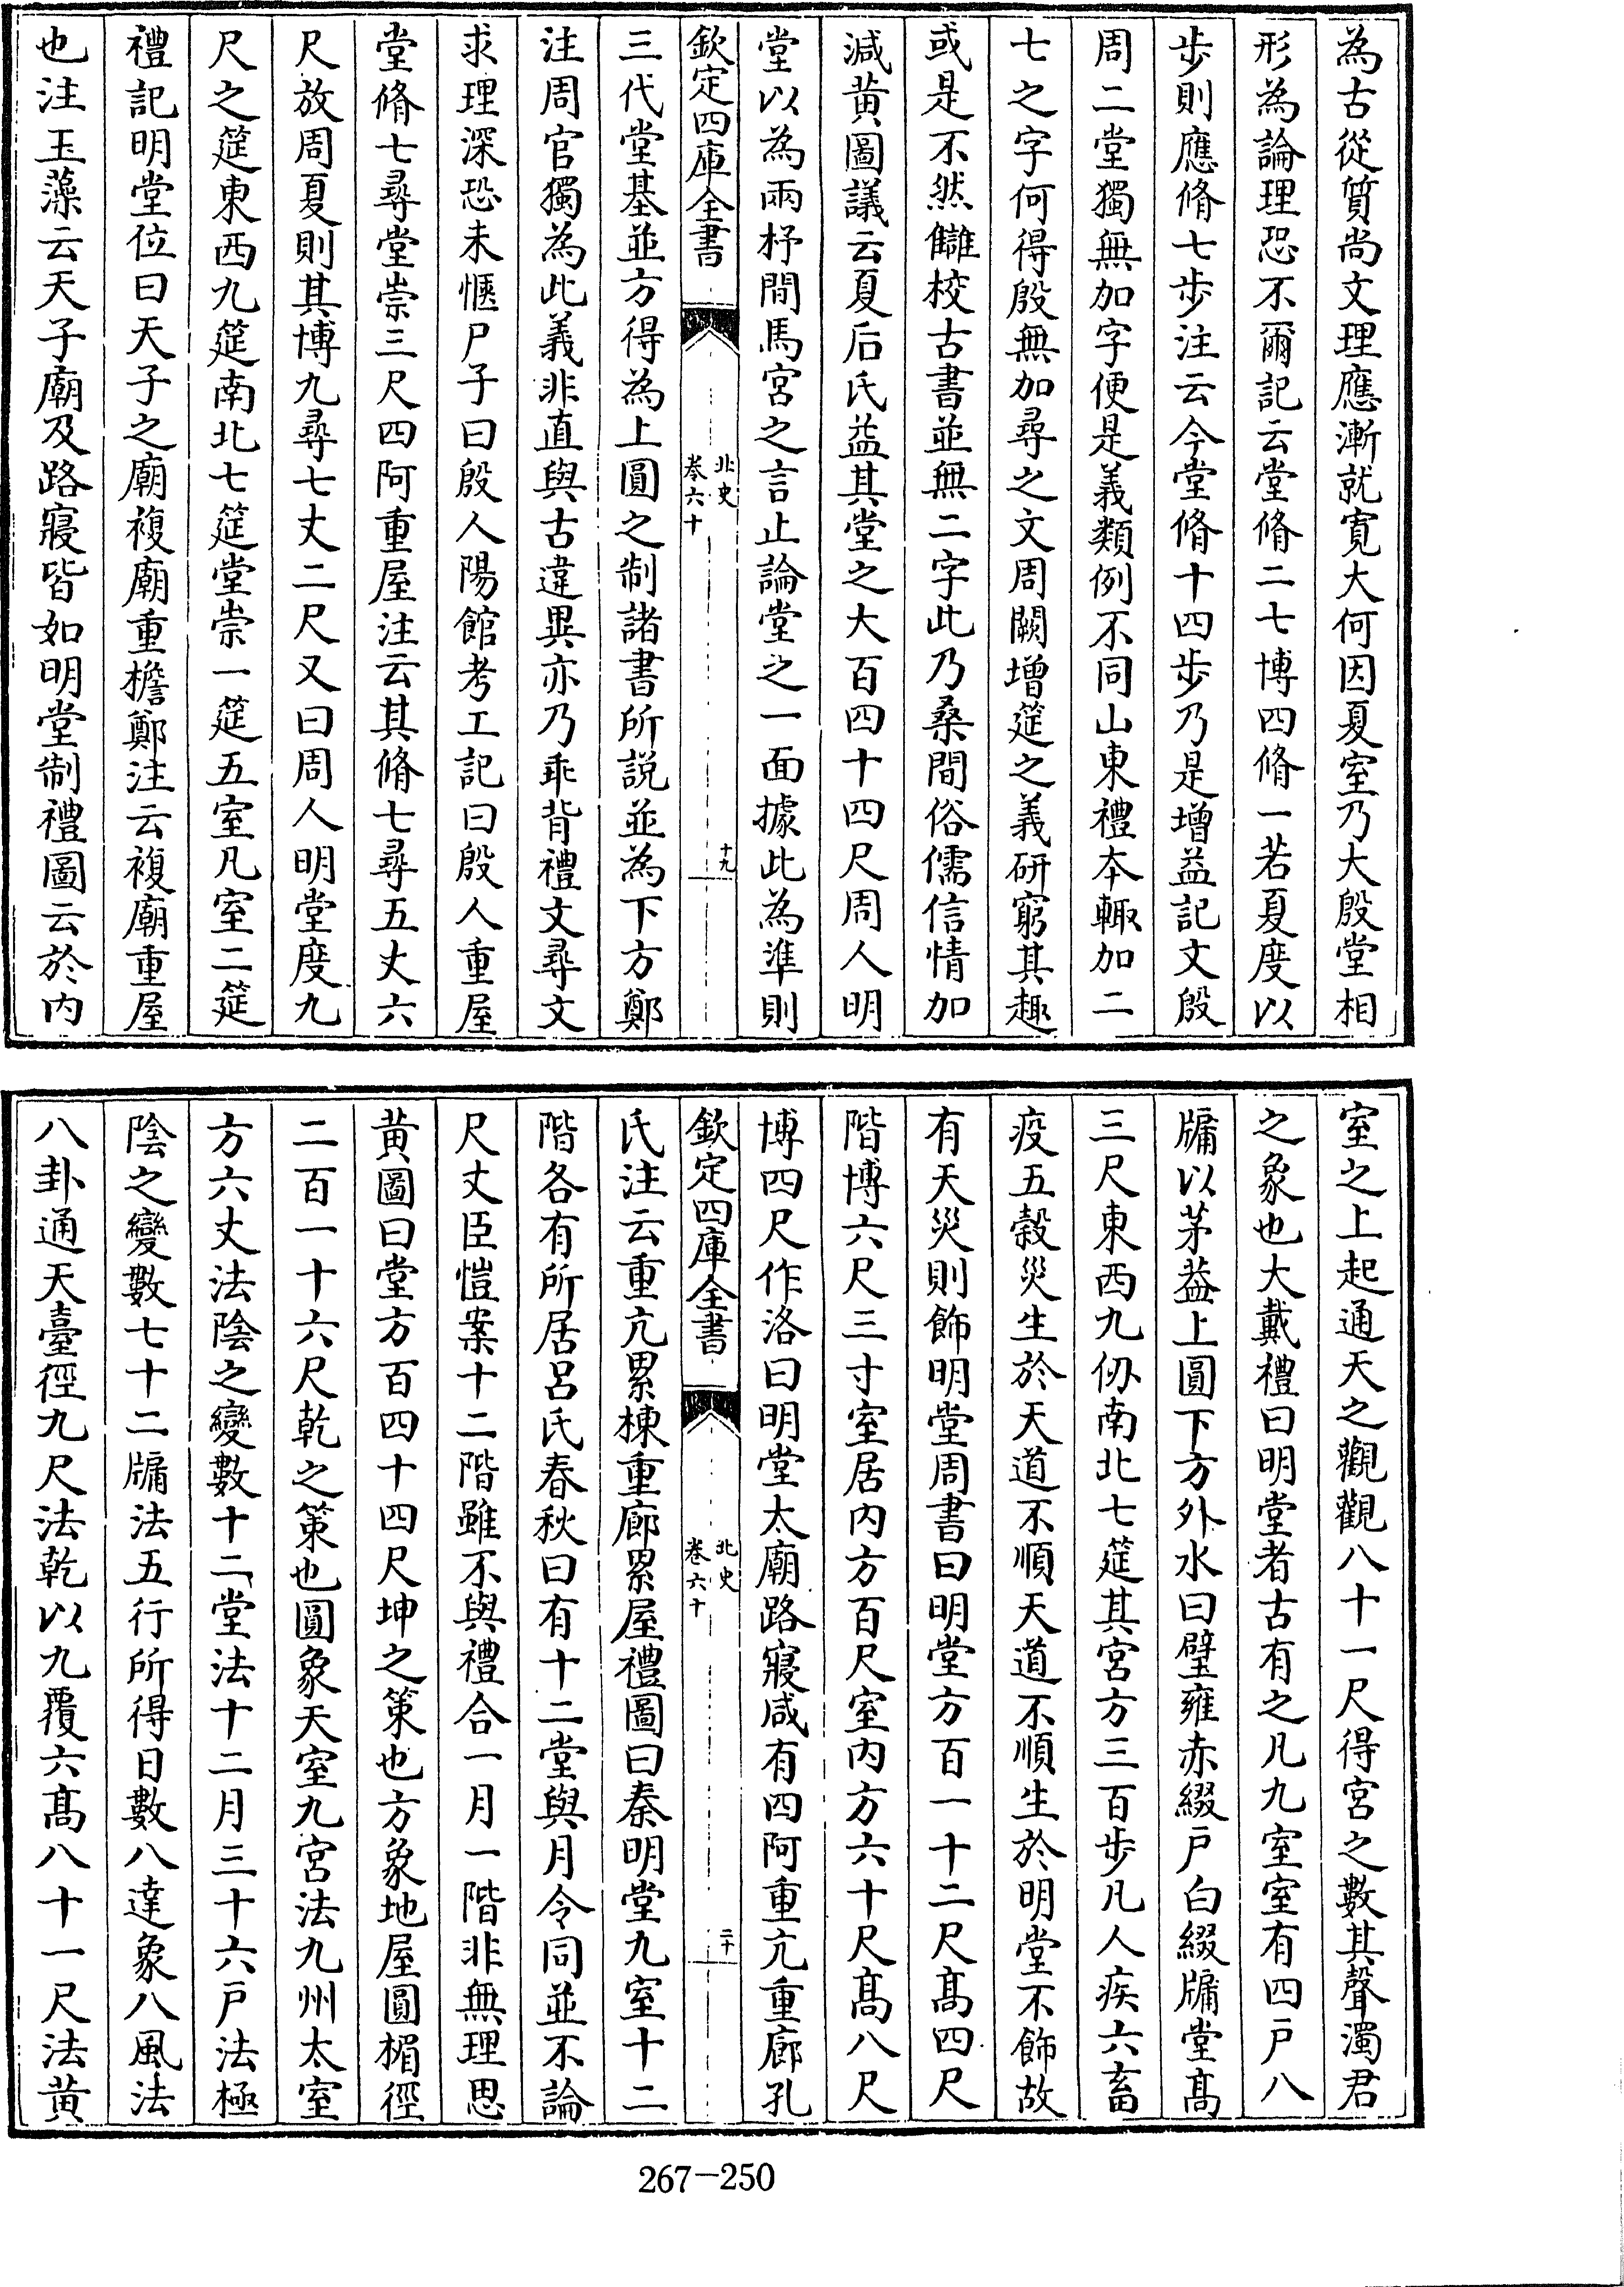 為古從質尚文理應漸就寛大何因夏室乃大殷堂相
形為論理恐不爾記云堂脩二七博四脩一若夏度以
歩則應脩七歩注云今堂脩十四歩乃是增益記文殷
周二堂獨無加字便是義類例不同山東禮本輙加二
七之字何得殷無加尋之文周闕增筵之義研窮其趣
或是不然讎校古書並無二字此乃桑間俗儒信情加
減黄圖議云夏后氏益其堂之大百四十四尺周人明
堂以為兩杼間馬宮之言止論堂之一面據此為準則
欽定四庫全書
北史
卷六十
十九
三代堂基並方得為上圓之制諸書所説並為下方鄭
注周官獨為此義非直與古違異亦乃乖背禮文尋文
求理深恐未愜尸子曰殷人陽館考工記曰殷人重屋
堂脩七尋堂崇三尺四阿重屋注云其脩七尋五丈六
尺放周夏則其博九尋七丈二尺又曰周人明堂度九
尺之筵東西九筵南北七筵堂崇一筵五室凡室二筵
禮記明堂位曰天子之廟複廟重檐鄭注云複廟重屋
也注玉藻云天子廟及路寢皆如明堂制禮圖云於内
室之上起通天之觀觀八十一尺得宮之數其聲濁君
之象也大戴禮曰明堂者古有之凡九室室有四戸八
牖以茅葢上圓下方外水曰璧雍赤綴戸白綴牖堂髙
三尺東西九仞南北七筵其宮方三百歩凡人疾六畜
疫五穀災生於天道不順天道不順生於明堂不飾故
有天災則飾明堂周書曰明堂方百一十二尺髙四尺
階博六尺三寸室居内方百尺室内方六十尺髙八尺
博四尺作洛曰明堂太廟路寢咸有四阿重亢重廊孔
欽定四庫全書
北史
卷六十
二十
氏注云重亢累棟重廊累屋禮圖曰秦明堂九室十二
階各有所居吕氏春秋曰有十二堂與月令同並不論
尺丈臣愷案十二階雖不與禮合一月一階非無理思
黄圖曰堂方百四十四尺坤之策也方象地屋圓楣徑
二百一十六尺乾之策也圓象天室九宮法九州太室
方六丈法陰之變數十二堂法十二月三十六戸法極
陰之變數七十二牖法五行所得日數八達象八風法
八卦通天臺徑九尺法乾以九覆六髙八十一尺法黄
267-250